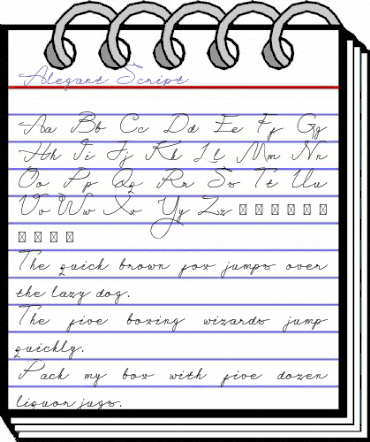 Alegant Script
Aa Bb Cc Dd Ee Ff Gg
Hh Ii Jj Kk Ll Mm Nn
Oo Pp Qq Rr Ss Tt Uu
Vv Ww Xx Yy Zz
The quick brown fox jumps over
the lazy dog.
The five boxing wizards jump
quickly.
Pack my box with five dozen
liquor jugs.